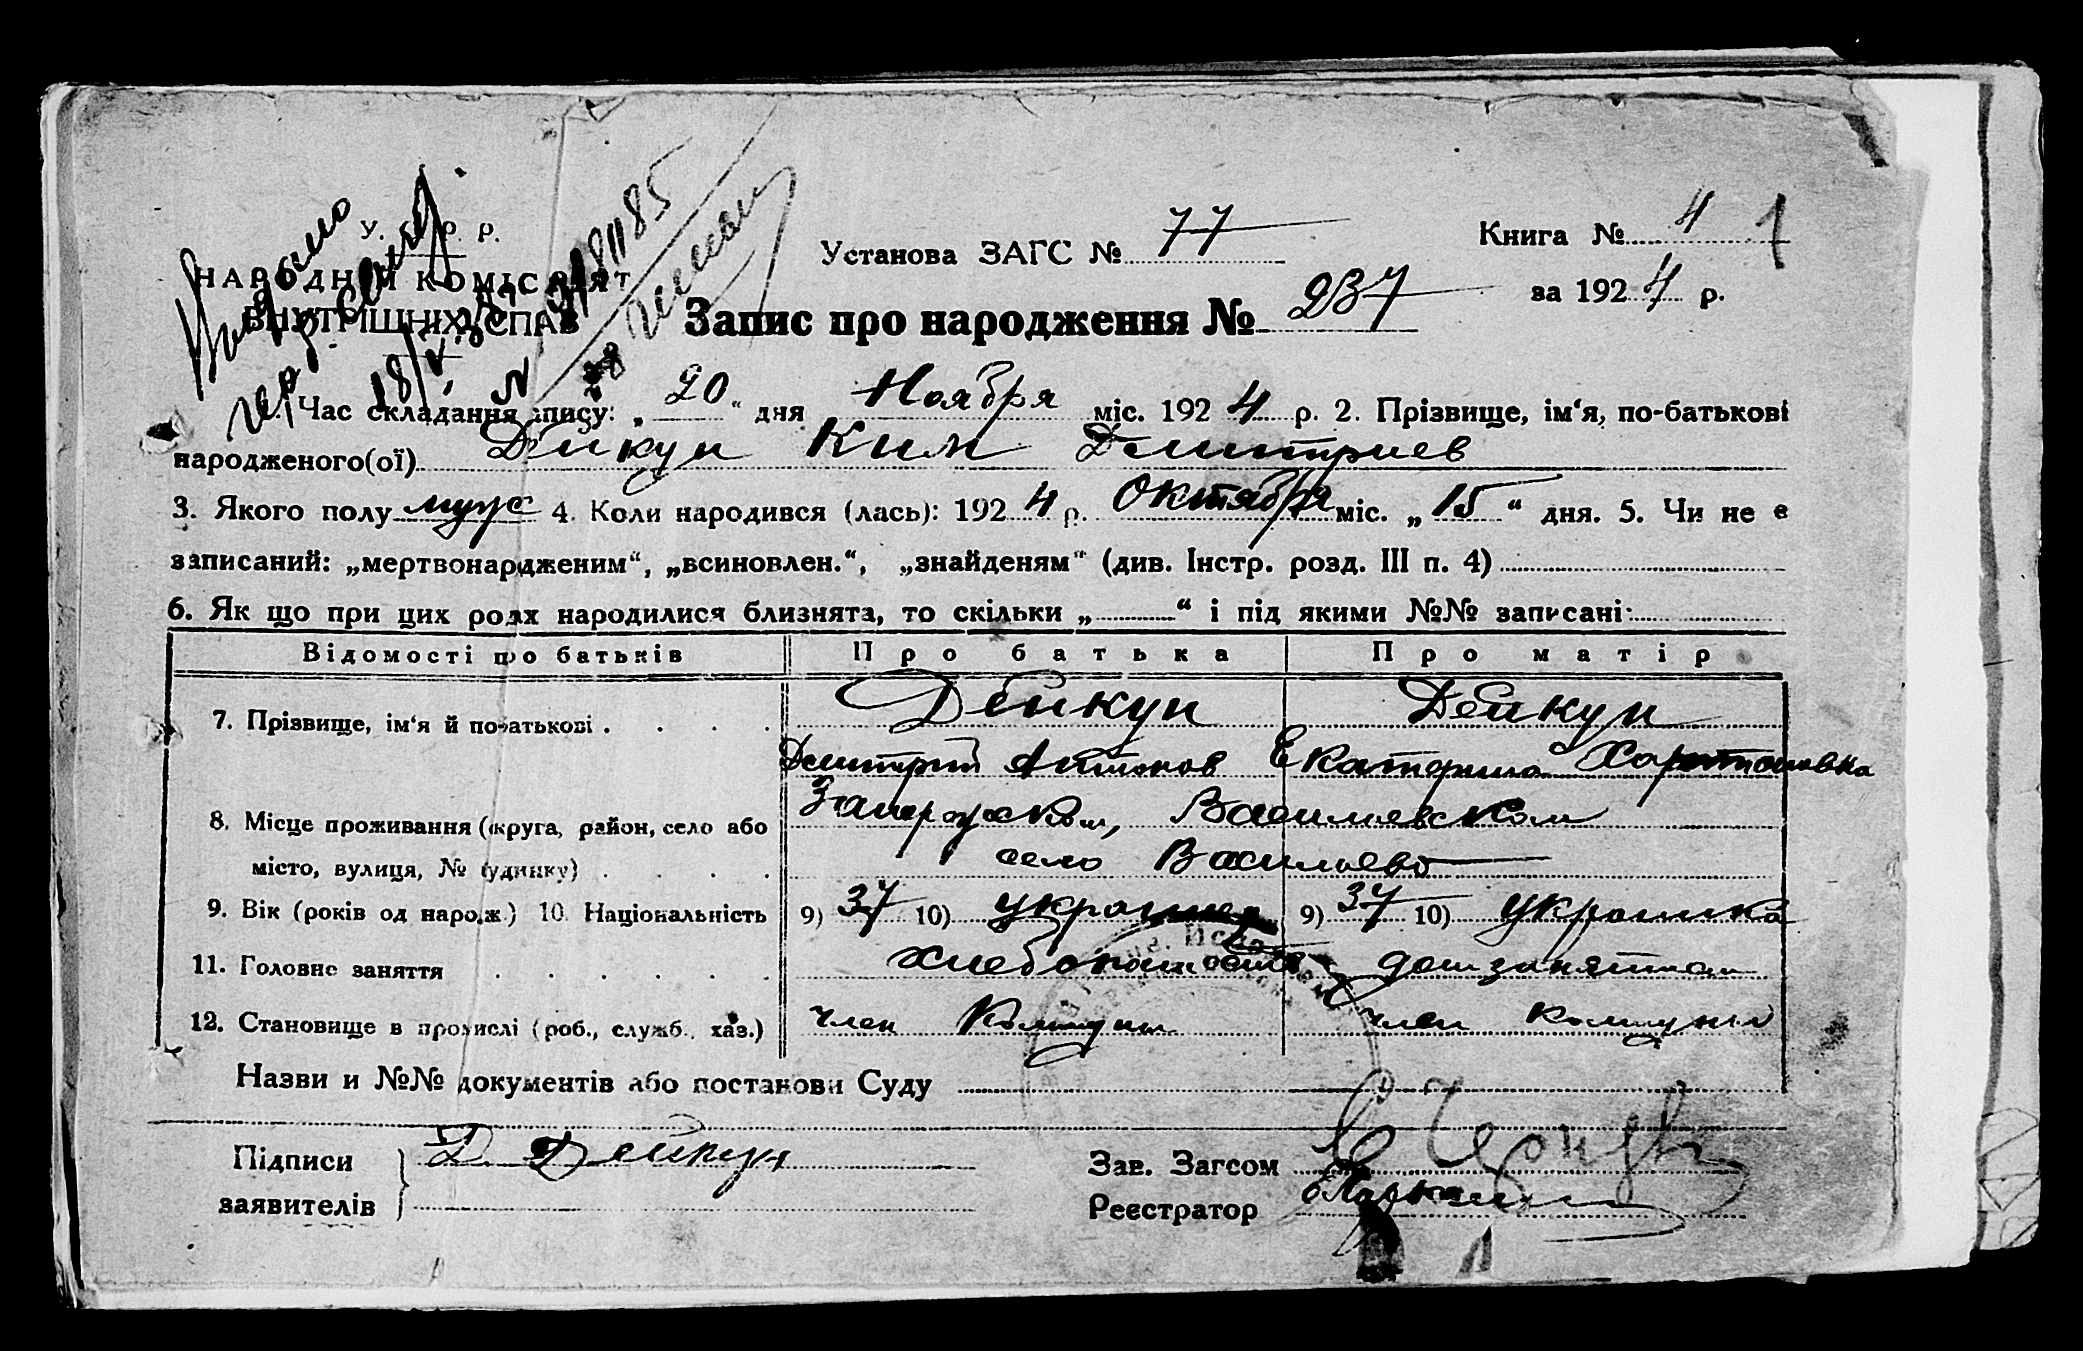 У. С. Р. Р.
НАРОДНІЙ КОМІСАРІЯТ
ВНУТРІШНІХ СПРАВ
Установа ЗАГС № 77
Книга № 4 1
за 1924 р.
Запис про народження № 237
1. Час складання запису: „ 20 “ дня Ноября міс. 1924 р. 2. Прізвище, ім‘я, по-батькові
народженого(ої) Дейкун Ким Дмитриев
3. Якого полу муж 4. Коли народився (лась): 1924 р. Октября міс. „ 15 “ дня. 5. Чи не є
записаний: „мертвонародженим“, „всиновлен.“, „знайденям“ (див. Інстр. розд. III п. 4)
6. Як що при цих родах народилися близнята, то скільки „ “ і під якими №№ записані:
Відомості про батьків Про батька Про матір
7. Прізвище, ім‘я й по-батькові Дейкун Дейкун
Дмитрий Антонов Екатерина Харитоновка
8. Місце проживання (округа, район, село або Запорожском, Васильевском
місто, вулиця, № будинку) село Васильево
9. Вік (років од народж.) 10. Національність 9) 37 10) украинец 9) 37 10) украинка
11. Головне заняття хлебопашество домзанятиям
12. Становище в промислі (роб., служб. хаз.) член Коммуны член коммуны
Назви и №№ документів або постанови Суду
Підписи Д. Дейкун
заявителів
Зав. Загсом
Реєстратор